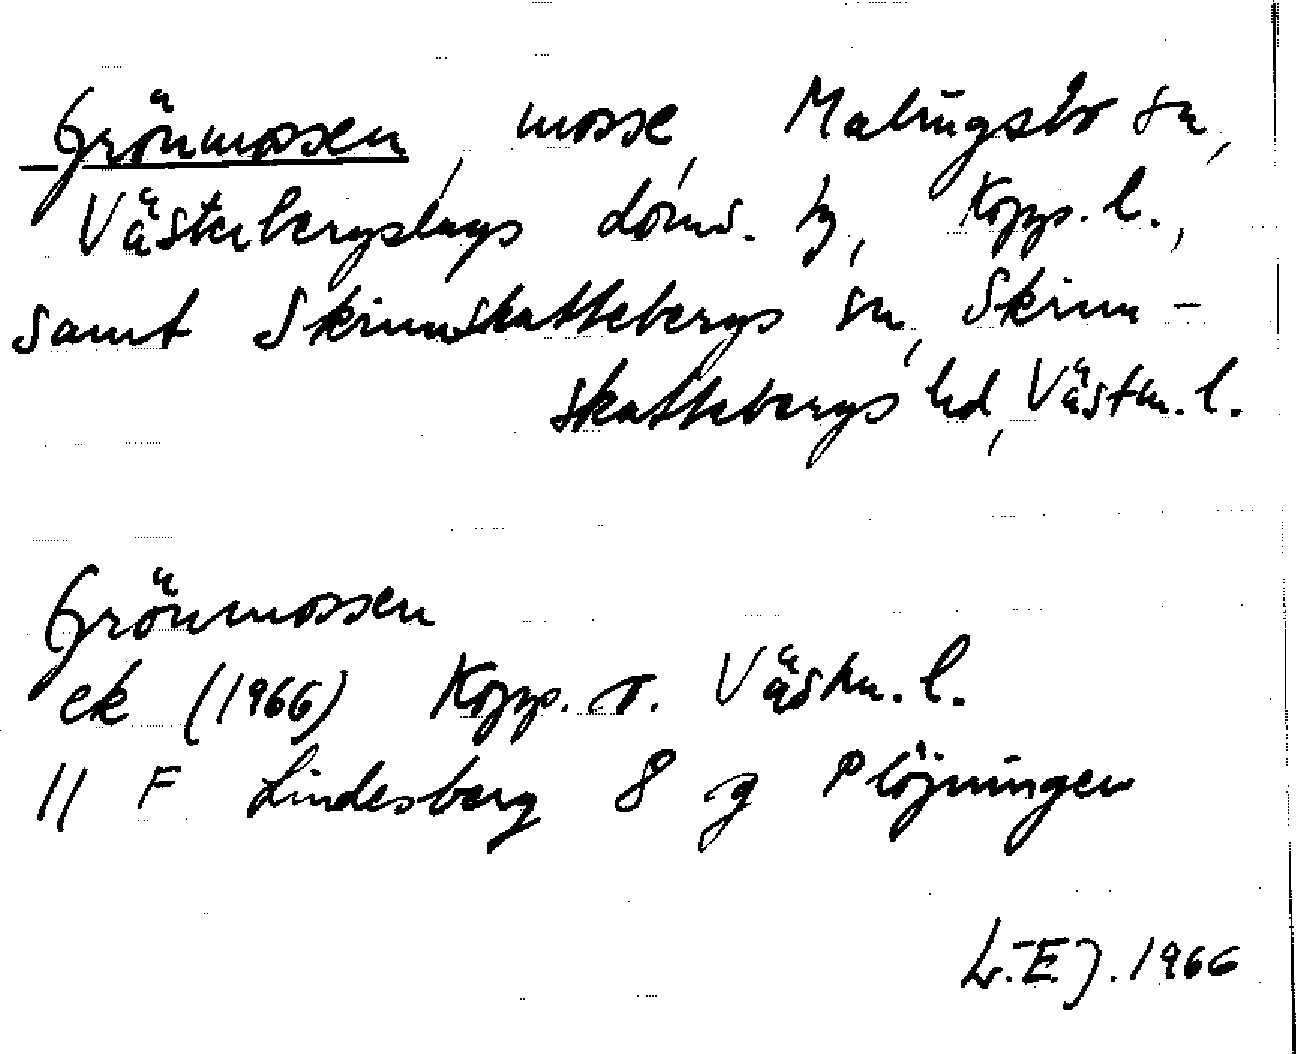 Grönmossen, mosse, Malingsbo sn,
Västerbergslags doms. tg, Kopp. l.,
samt Skinnskattebergs sn, Skinn-
skattebergs hd, Västm. l.
Grönmossen
ek (1966) Kopp. o. Västm. l.
11 F Lindesberg 8 g Plöjningen
L.E.J. 1966